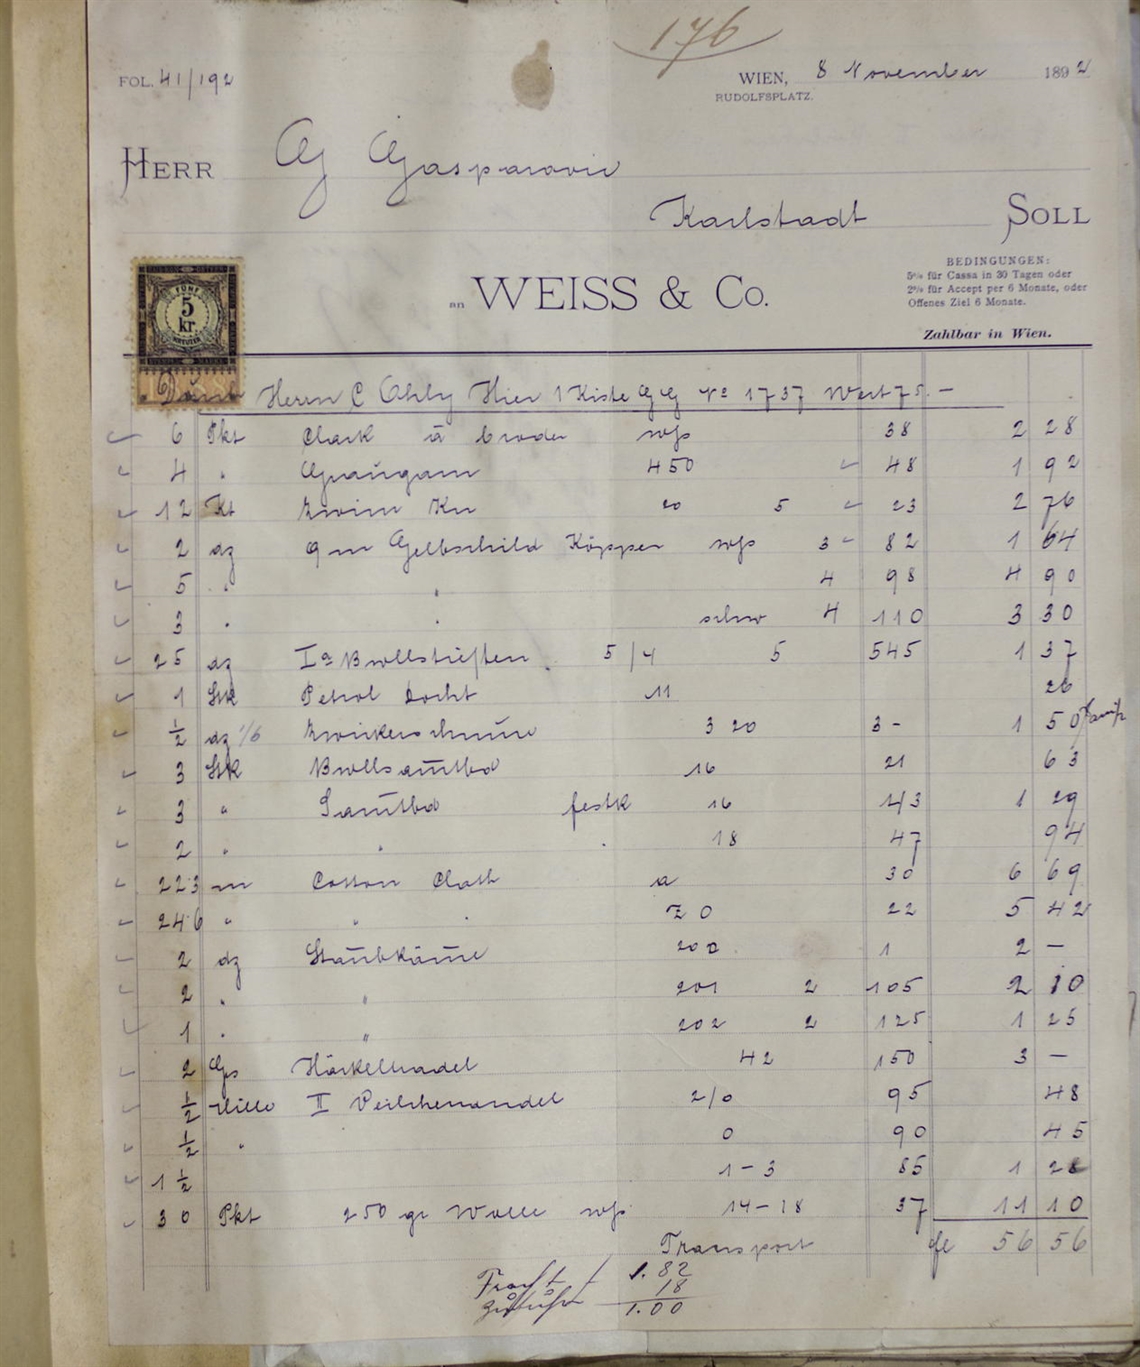 176
FOL. 41/192
WIEN, 8 November 1892
RUDOLFSPLATZ.
HERR G Gasparovic
Karlstadt SOLL
BEDINGUNGEN:
5% für Cassa in 30 Tagen oder
2% für Accept per 6 Monate, oder
Offenes Ziel 6 Monate.
an WEISS & Co.
Zahlbar in Wien.
FÜNF 5 kr. KREUZER
Herrn C Ohly Hier 1 Kiste GG No 1737 Wert 75.-
6 Pkt Clark à broder wss 38 2 28
4 " 450 48 1 92
12 Kt Zwirn Kn 20 5 23 2 76
2 dz 9 m Gelbschild Köpper wss 3 82 1 64
5 " " 4 98 4 90
3 " " schw 4 110 3 30
25 dz Ia 5/4 5 545 1 37
1 Stk Petrol Docht 11 26
1/2 dz 1/6 Zwickerschnüre 3 20 3 - 1 50
3 Stk 16 21 63
3 " Samtbd festk 16 43 1 29
2 " " " 18 47 94
223 m Cotton Cloth a 30 6 69
246 " " " Z 0 22 5 42
2 dz Staubkäme 200 1 2 -
2 " " 201 2 105 2 10
1 " " 202 2 125 1 25
2 Gs Häkelnadel 42 150 3 -
1/2 Mille II 2/0 95 48
1/2 " 0 90 45
1 1/2 1-3 85 1 28
30 Pkt 250 gr Wolle wss 14-18 37 11 10
Transport fl 56 56
Fracht 1.82
18
1.00